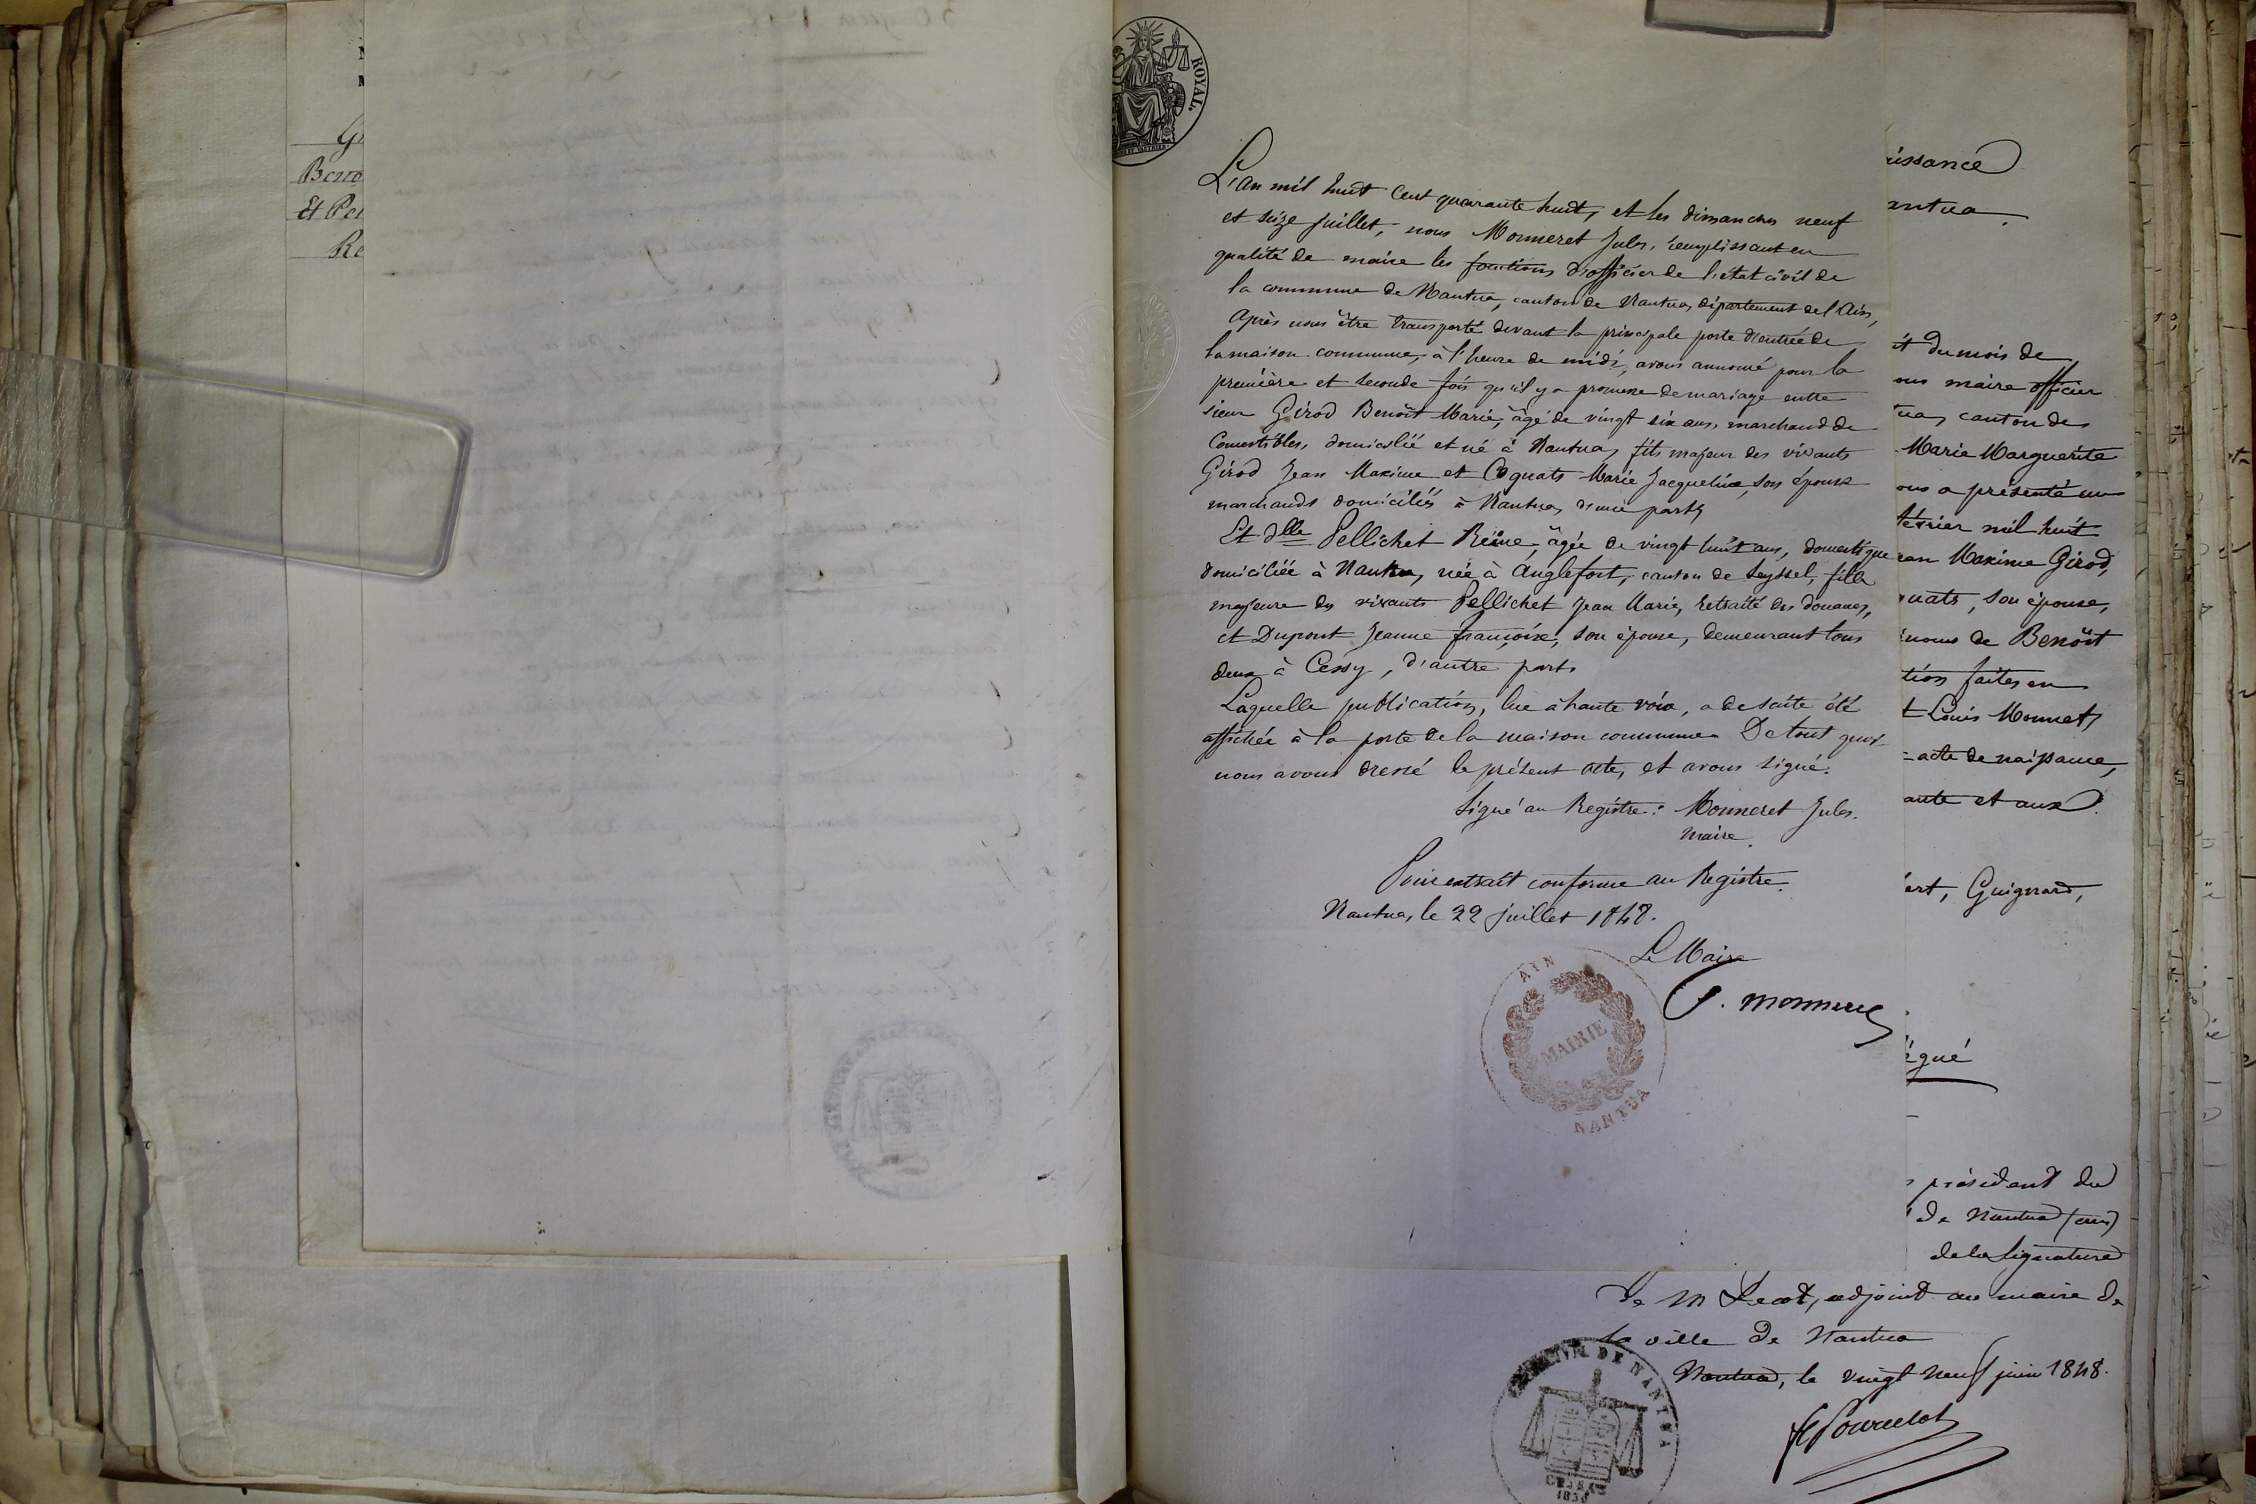 Et Per
ROYAL.
L'an mil huit cent quarante huit, et les dimanches neuf
et seize juillet, nous Monneret Jules, remplissant en
qualité de maire les fonctions d'officier de l'état civil de
la commune de Nantua, canton de Nantua, département de l'Ain,
Après nous être transporté devant la principale porte d'entrée de
la maison commune, à l'heure de midi, avons annoncé pour la
première et seconde fois qu'il y a promesse de mariage entre
sieur Girod Benoît Marie, âgé de vingt six ans, marchand de
Comestibles, domicilié et né à Nantua, fils majeur des vivants
Girod Jean Maxime et Cognats Marie Jacqueline, son épouse
marchands domiciliés à Nantua, d'une part,
Et dlle Pellichet Reine, âgée de vingt huit ans, domestique
domiciliée à Nantua, née à Anglefort, canton de Seyssel, fille
majeure des vivants Pellichet Jean Marie, retraité des douanes,
et Dupont Jeanne françoise, son épouse, demeurant tous
deux à Cessy, d'autre part.
Laquelle publication, lue à haute voix, a de suite été
affichée à la porte de la maison commune. De tout quoi
nous avons dressé le présent acte, et avons signé.
Signé au Registre : Monneret Jules.
maire.
Pour extrait conforme au Registre.
Nantua, le 22 juillet 1848.
Le Maire
J. Monneret
AIN
MAIRIE
NANTUA
issance
antua.
it du mois de
ous maire officier
tua, canton de
Marie Marguerite
ous a présenté un
février mil huit
ean Maxime Girod,
nats, son épouse,
énoms de Benoît
tion faites en
t Louis Monnet,
acte de naissance,
ante et aux
ert, Guignard,
égué
président du
de Nantua (ain)
de la signature
de M adjoint au maire de
la ville de Nantua
Nantua, le vingt neuf juin 1848.
DE NANTUA